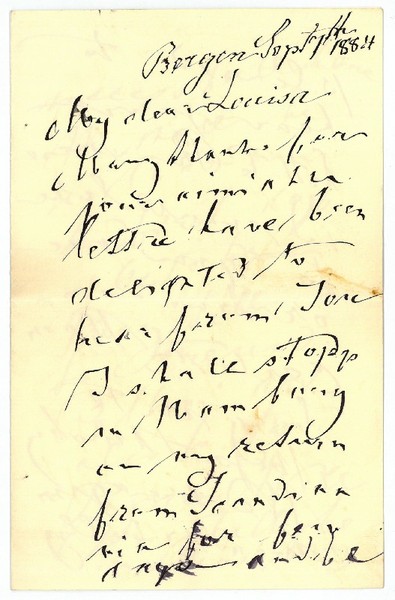 Bergen Sept 7th 1884
My dear Louisa
Many thanks for
your aimiable
lettre have been
delighted to
hear from You
I shall stopp
in Hamburg
on my return
from Scandina
via for
days and be